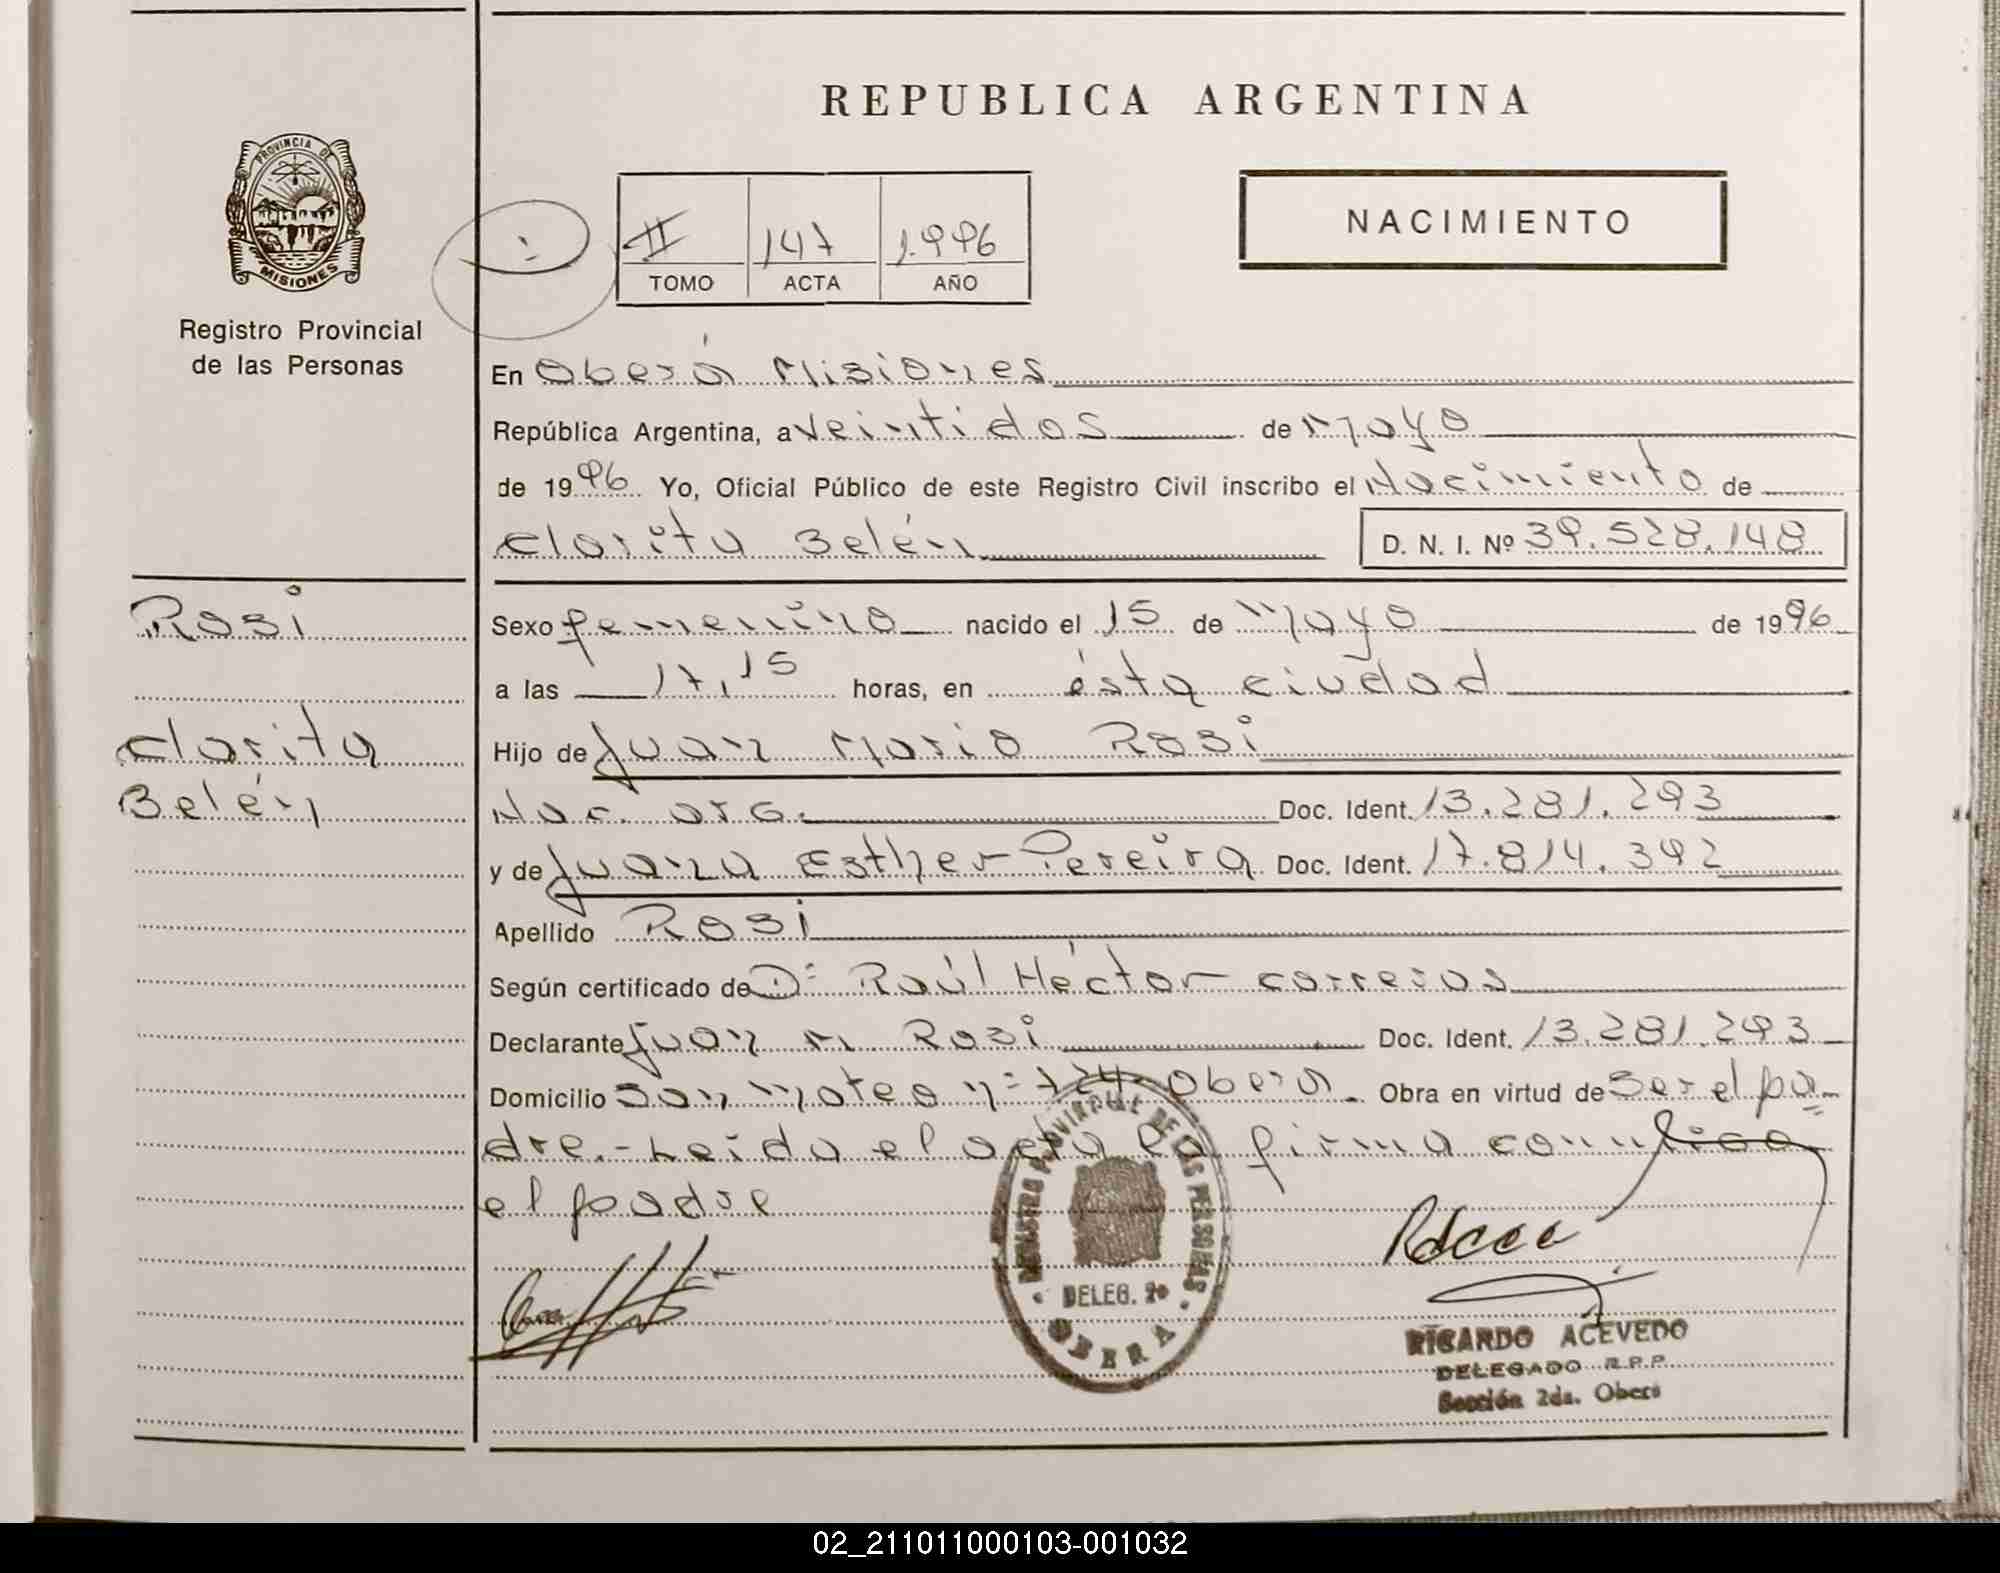 REPUBLICA ARGENTINA
PROVINCIA DE
MISIONES
Registro Provincial
de las Personas
II 147 1.996
TOMO ACTA AÑO
NACIMIENTO
En Oberá Misiones
República Argentina, a veintidos de mayo
de 1996 Yo, Oficial Público de este Registro Civil inscribo el Nacimiento de
Clarita Belén D. N. I. Nº 39.528.148
Rosi
Clarita
Belén
Sexo femenino nacido el 15 de mayo de 1996
a las 17,15 horas, en ésta ciudad
Hijo de Juan Mario Rosi
Nac. arg. Doc. Ident. 13.281.293
y de Juana Esther Pereira Doc. Ident. 17.814.392
Apellido Rosi
Según certificado de Dr Raúl Héctor
Declarante Juan M. Rosi Doc. Ident. 13.281.293
Domicilio San Mateo nº 724- Obera. Obra en virtud de ser el pa-
dre.- Leída el acta la firma conmigo
el padre
REGISTRO PROVINCIAL DE LAS PERSONAS
DELEG. 2ª
OBERA
RICARDO ACEVEDO
DELEGADO R.P.P.
Sección 2da. Oberá
02_211011000103-001032